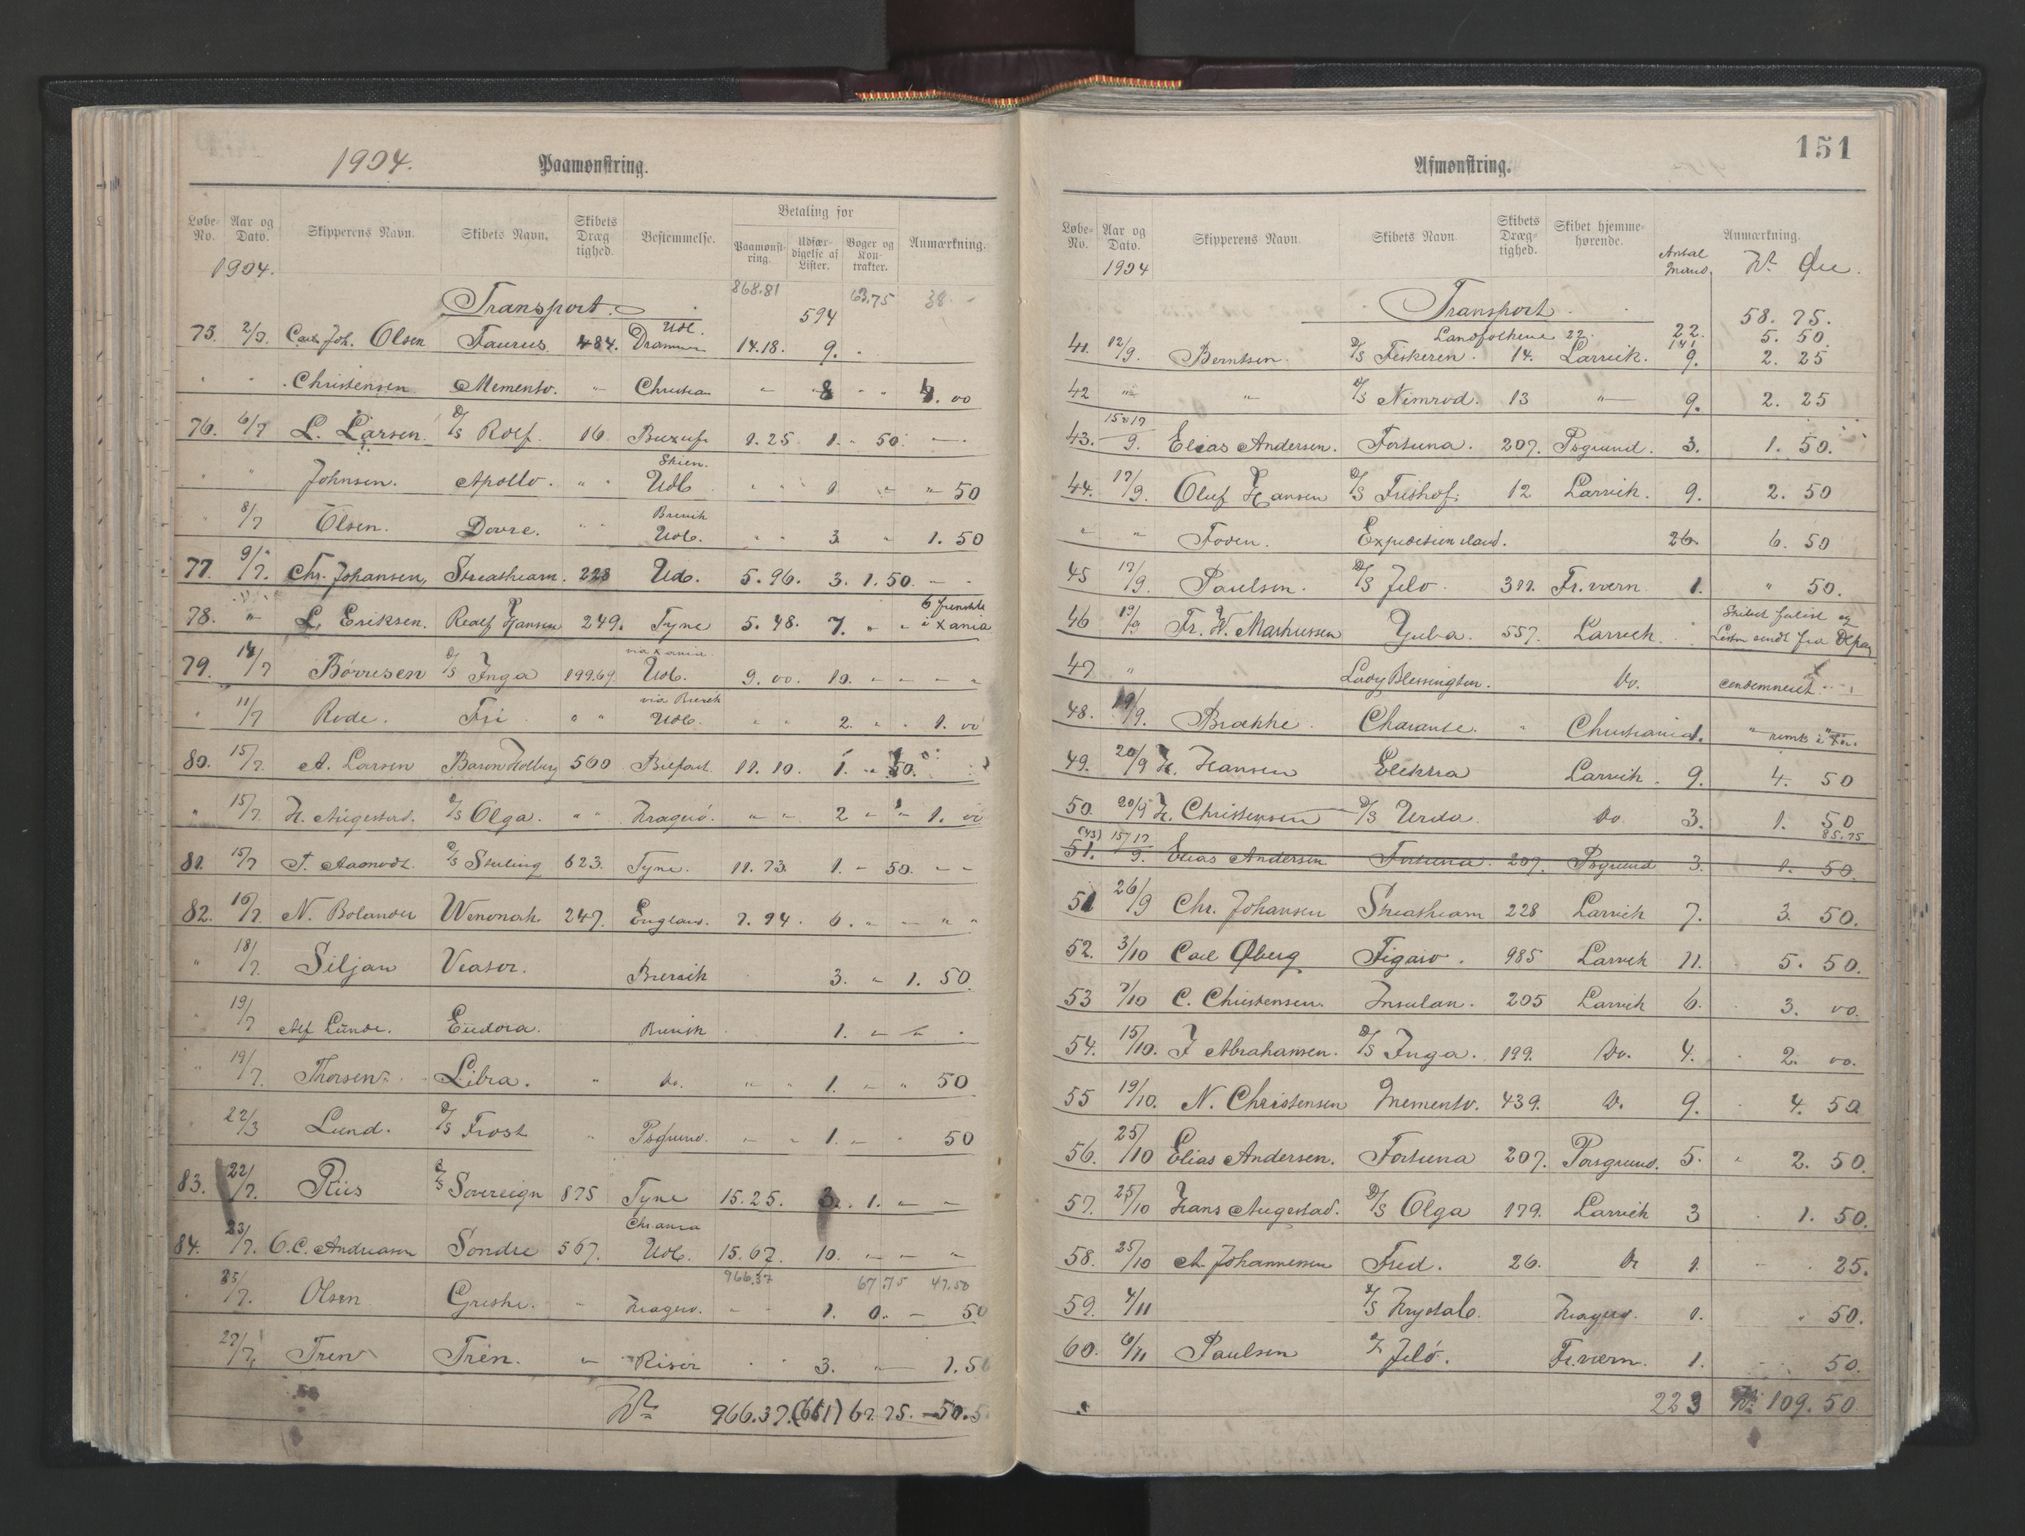 1904. Paamønstring.
Løbe-No. Aar og Dato. Skipperens Navn. Skibets Navn. Skibets Drægtighed. Bestemmelse. Betaling for Paamønstring. Udfærdigelse af Lister. Bøger og Kontrakter. Anmærkning.
1904.
868.81 63.75 38
Transport. 594
75. 2/7 Carl Joh. Olsen Taurus. 484. Udl. Drammen 14.18. 9.
" " Christensen Memento. " Christian " " 8 " " 4. 00
76. 6/7 L. Larsen. D/S Rolf. 16 1. 25 1. " 50.
" Johnsen. Apollo. " " Skien. Udl. " " 1 " " 50
" 8/7 Olsen. Dovre. " " Brevik Udl. " " 3. " 1. 50
77. 9/7. Chr. Johansen, Streatheam. 228 Udl. 5. 96. 3. 1. 50.
78. " L. Eriksen. Realf Hansen 249. Tyne 5. 48. 7. " " 6 i Xania
79. 11/7 Børresen D/S Inga 199.69 via Xania. Udl. 9. 00. 10. " " " "
" 11/7 Rode. Fri " " via Brevik Udl. " " 2. " " 1. 00
80. 15/7. A. Larsen Baron Holberg 560 Belfast 11. 10. 1. " 50.
" 15/7. H. Augestad. D/S Olga. " " Kragerø. " " 2 " " 1. 00
81. 15/7 T. Aamodt. D/S Sterling 623. Tyne. 11. 73. 1. " 50.
82. 16/7 N. Bolander Wenonah. 247. England. 7. 94. 6. " " " "
" 18/7. Siljan Viator. Brevik 3. " 1. 50.
" 19/7 Alf Lunde. Eudora. Brevik 1. " "
" 19/7. Thorsen. Libra. " Do. " " 1. " " 50
22/3 Lund. D/S Frost " Psgrund. " " 1. " " 50
83. 22/7. Riis D/S Sovereign 875 Tyne 15. 25. 3. 1. " "
84. 23/7. O. C. Andreasen Sondre 567. Chrania Udl. 15. 67 10. " " "
966.37 67.75 47.50
" 25/7. Olsen Greshe. " Kragerø. " " 1. 0. " 50
27/7. Tren Tren. " Risør " " 3. " 1. 50
Kr 966.37. (661) 67. 75. — 50. 5
151
Afmønstring.
Løbe-No. Aar og Dato. Skipperens Navn. Skibets Navn. Skibets Drægtighed. Skibet hjemmehørende. Antal Mand. Anmærkning. Kr Øre.
1904
Transport 58. 75.
Landfolkene 22. 22. 5. 50.
141
41. 12/9. Berntsen D/S Fiskeren. 14. Larvik. 9. 2. 25
42 " " D/S Nimrod. 13 " 9. 2. 25
43. 15 & 17/9. Elias Andersen. Fortuna. 207. Psgrund. 3. 1. 50.
44. 17/9. Oluf Hansen D/S Frithof. 12 Larvik. 9. 2. 50
" " Foden. Expedition 26. 6. 50
45 17/9. Paulsen. D/S Jelo. 311. Fr.værn. 1. " 50.
46 19/9 Fr. W. Markussen Yuba. 557. Larvik. Skibet forlist og Listen sendt fra
47 " Lady Blessington. Do. condemneret
48. 19/9. Brække. Charante. " Christiania 1. "
49. 20/9 H. Hansen Elektra Larvik. 9. 4. 50
50. 20/9 H. Christensen D/S Urda Do 3. 1. 50
85.75
(43) 51. 15 17/9. Elias Andersen Fortuna. 207. Psgrund 3. 1. 50.
51 26/9 Chr. Johansen Streatheam 228 Larvik 7. 3. 50.
52. 3/10 Carl Øberg Figaro. 985 Larvik 11. 5. 50.
53 7/10 C. Christensen. Insulan. 205 Larvik 6. 3. 00.
54. 15/10. J Abrahamsen. D/S Inga. 199. Do. 4. 2. 00.
55 19/10. N. Christensen Memento. 439. Do. 9. 4. 50
56. 25/10 Elias Andersen. Fortuna 207. Porsgrund. 5. " 2. 50.
57. 25/10 Hans Augestad. D/S Olga 179. Larvik 3 1. 50.
58. 25/10 A. Johannessen Fred. 26. Do 1. 25.
59. 4/11 D/S Krystal Kragerø. 1. " 50.
60. 6/11 Paulsen D/S Jelö. Fr.værn. 1. 50.
223 Kr. 109. 50